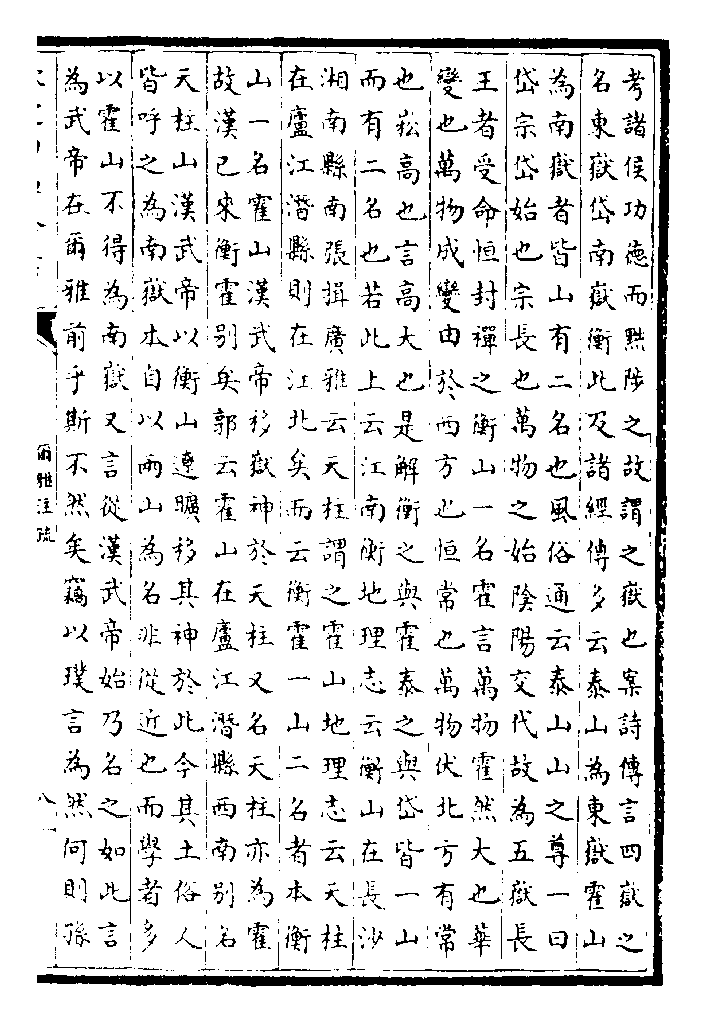 考諸侯功德而黜陟之故謂之嶽也案詩傳言四嶽之
名東嶽岱南嶽衡此及諸經傳多云泰山為東嶽霍山
為南嶽者皆山有二名也風俗通云泰山山之尊一曰
岱宗岱始也宗長也萬物之始陰陽交代故為五嶽長
王者受命恒封禪之衡山一名霍言萬物霍然大也華
變也萬物成變由於西方也恒常也萬物伏北方有常
也崧高也言高大也是解衡之與霍泰之與岱皆一山
而有二名也若此上云江南衡地理志云衡山在長沙
湘南縣南張揖廣雅云天柱謂之霍山地理志云天柱
在廬江潛縣則在江北矣而云衡霍一山二名者本衡
山一名霍山漢武帝移嶽神於天柱又名天柱亦為霍
故漢已來衡霍别矣郭云霍山在廬江潛縣西南别名
天柱山漢武帝以衡山遼曠移其神於此今其土俗人
皆呼之為南嶽本自以兩山為名非從近也而學者多
以霍山不得為南嶽又言從漢武帝始乃名之如此言
為武帝在爾雅前乎斯不然矣竊以璞言為然何則孫
爾雅注疏
八